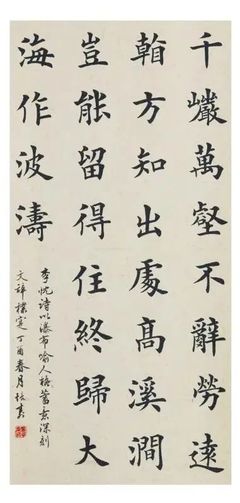 千巖萬壑不辭勞遠
方知出處高溪澗
豈能留得住終歸大
海作波濤
李忱诗以瀑布喻人格蓄意深刻
文辞樸寔丁酉春月